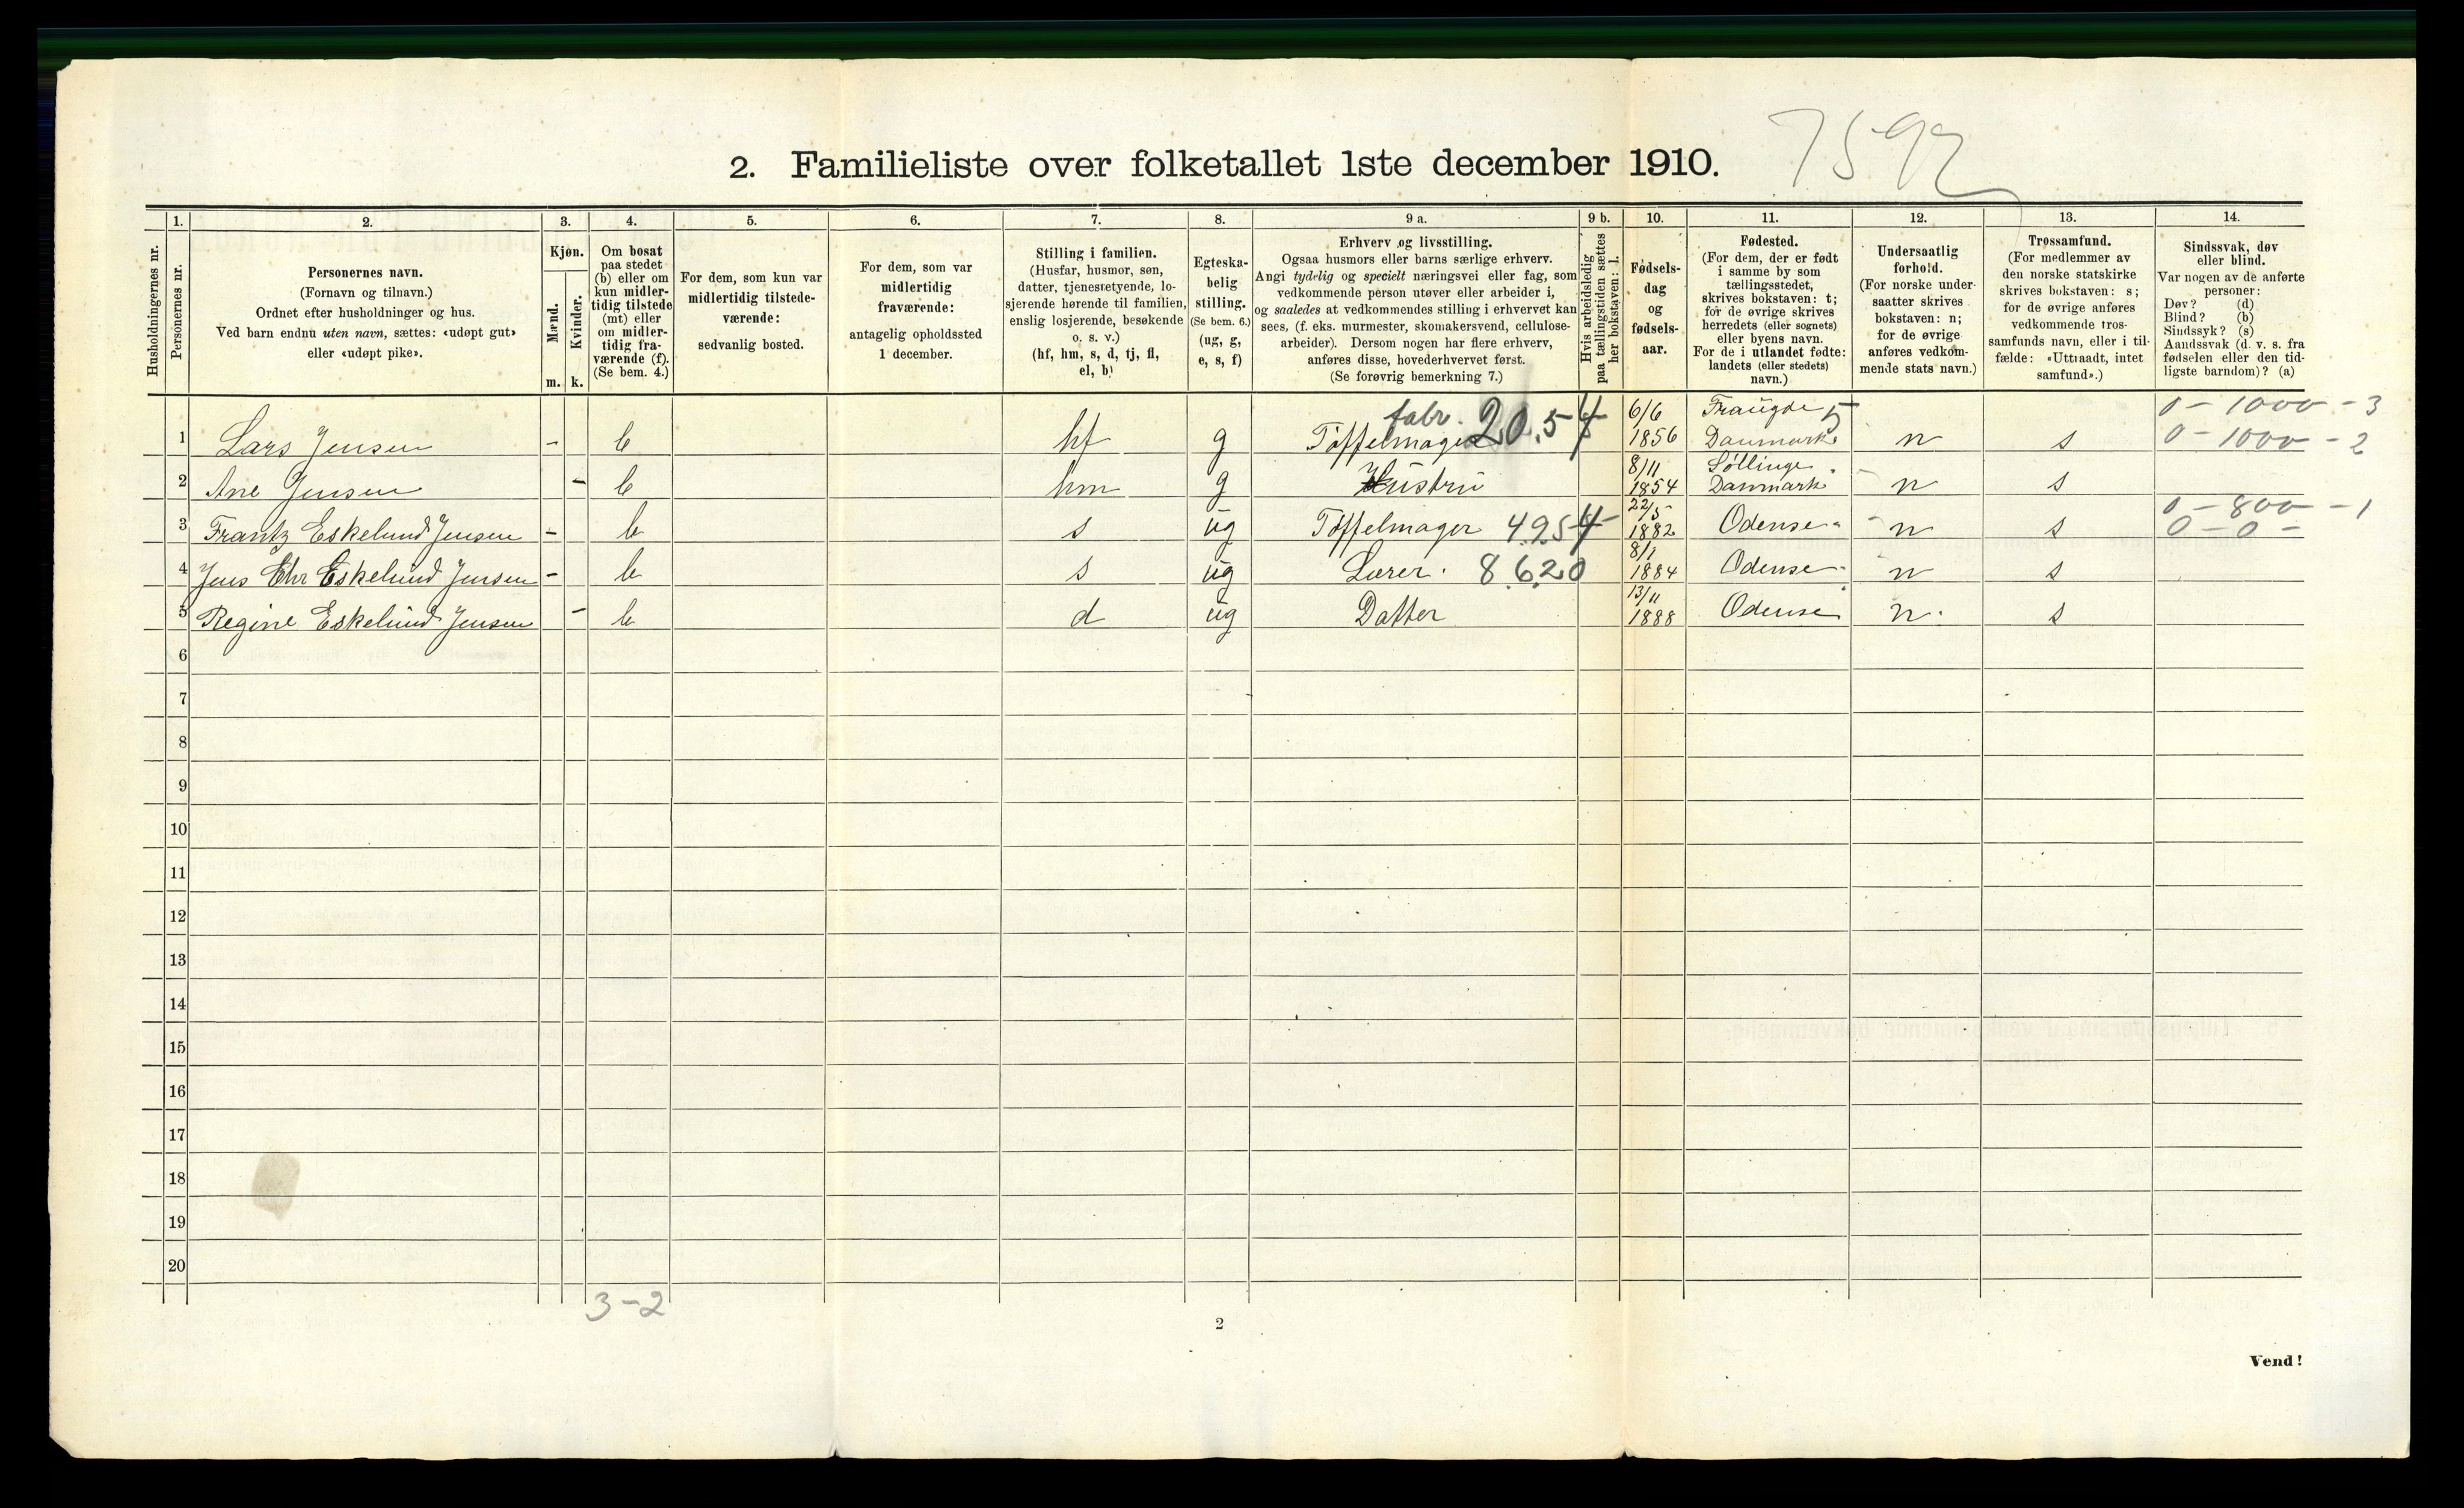 7592
2. Familieliste over folketallet 1ste december 1910.
Husholdningernes nr.
1.
Personernes nr.
2.
Personernes navn.
(Fornavn og tilnavn.)
Ordnet efter husholdninger og hus.
Ved barn endnu uten navn, sættes: «udøpt gut»
eller «udøpt pike».
3.
Kjøn.
Mænd.
Kvinder.
m. k.
4.
Om bosat
paa stedet
(b) eller om
kun midler-
tidig tilstede
(mt) eller
om midler-
tidig fra-
værende (f).
(Se bem. 4.)
5.
For dem, som kun var
midlertidig tilstede-
værende:
sedvanlig bosted.
6.
For dem, som var
midlertidig
fraværende:
antagelig opholdssted
1 december.
7.
Stilling i familien.
(Husfar, husmor, søn,
datter, tjenestetyende, lo-
sjerende hørende til familien,
enslig losjerende, besøkende
o. s. v.)
(hf, hm, s, d, tj, fl,
el, b)
8.
Egteska-
belig
stilling.
(Se bem. 6.)
(ug, g,
e, s, f)
9 a.
Erhverv og livsstilling.
Ogsaa husmors eller barns særlige erhverv.
Angi tydelig og specielt næringsvei eller fag, som
vedkommende person utøver eller arbeider i,
og saaledes at vedkommendes stilling i erhvervet kan
sees, (f. eks. murmester, skomakersvend, cellulose-
arbeider). Dersom nogen har flere erhverv,
anføres disse, hovederhvervet først.
(Se forøvrig bemerkning 7.)
9 b.
Hvis arbeidsledig
paa tællingstiden sættes
her bokstaven: l.
10.
Fødsels-
dag
og
fødsels-
aar.
11.
Fødested.
(For dem, der er født
i samme by som
tællingsstedet,
skrives bokstaven: t;
for de øvrige skrives
herredets (eller sognets)
eller byens navn.
For de i utlandet fødte:
landets (eller stedets)
navn.)
12.
Undersaatlig
forhold.
(For norske under-
saatter skrives
bokstaven: n;
for de øvrige
anføres vedkom-
mende stats navn.)
13.
Trossamfund.
(For medlemmer av
den norske statskirke
skrives bokstaven: s;
for de øvrige anføres
vedkommende tros-
samfunds navn, eller i til-
fælde: «Uttraadt, intet
samfund».)
14.
Sindssvak, døv
eller blind.
Var nogen av de anførte
personer:
Døv? (d)
Blind? (b)
Sindssyk? (s)
Aandssvak (d. v. s. fra
fødselen eller den tid-
ligste barndom)? (a)
fabr. 20.54 6/6 Fraugde 5 0 - 1000 - 3
1 Lars Jensen - b hf g Tøffelmager 1856 Danmark n s 0 - 1000 - 2
8/11 Søllinge
2 Ane Jensen - b hm g Hustru 1854 Danmark n s
22/5 0 - 800 - 1
3 Frantz Eskelund Jensen - b s ug Tøffelmager 4954 1882 Odense n s 0 - 0 -
8/1
4 Jens Chr Eskelund Jensen - b s ug Lærer 8620 1884 Odense n s
13/11
5 Regine Eskelund Jensen - b d ug Datter 1888 Odense n. s
6
7
8
9
10
11
12
13
14
15
16
17
18
19
20
3-2
2
Vend!